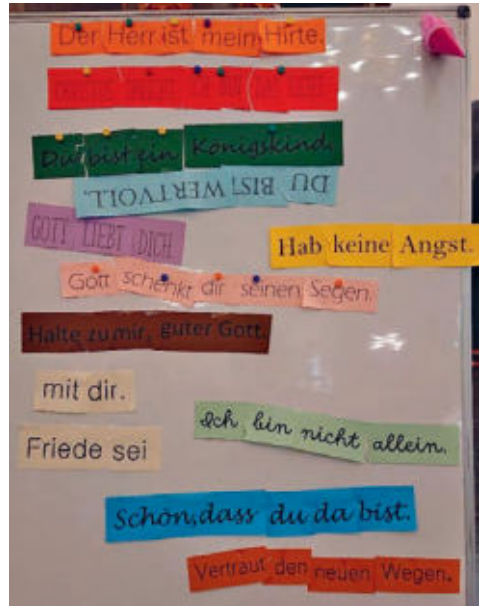 Der Herr ist mein Hirte.
Du bist ein Königskind.
DU BIST WERTVOLL.
GOTT LIEBT DICH
Hab keine Angst.
Gott schenkt dir seinen Segen.
Halte zu mir, guter Gott.
mit dir.
Friede sei
Ich bin nicht allein.
Schön, dass du da bist.
Vertraut den neuen Wegen.